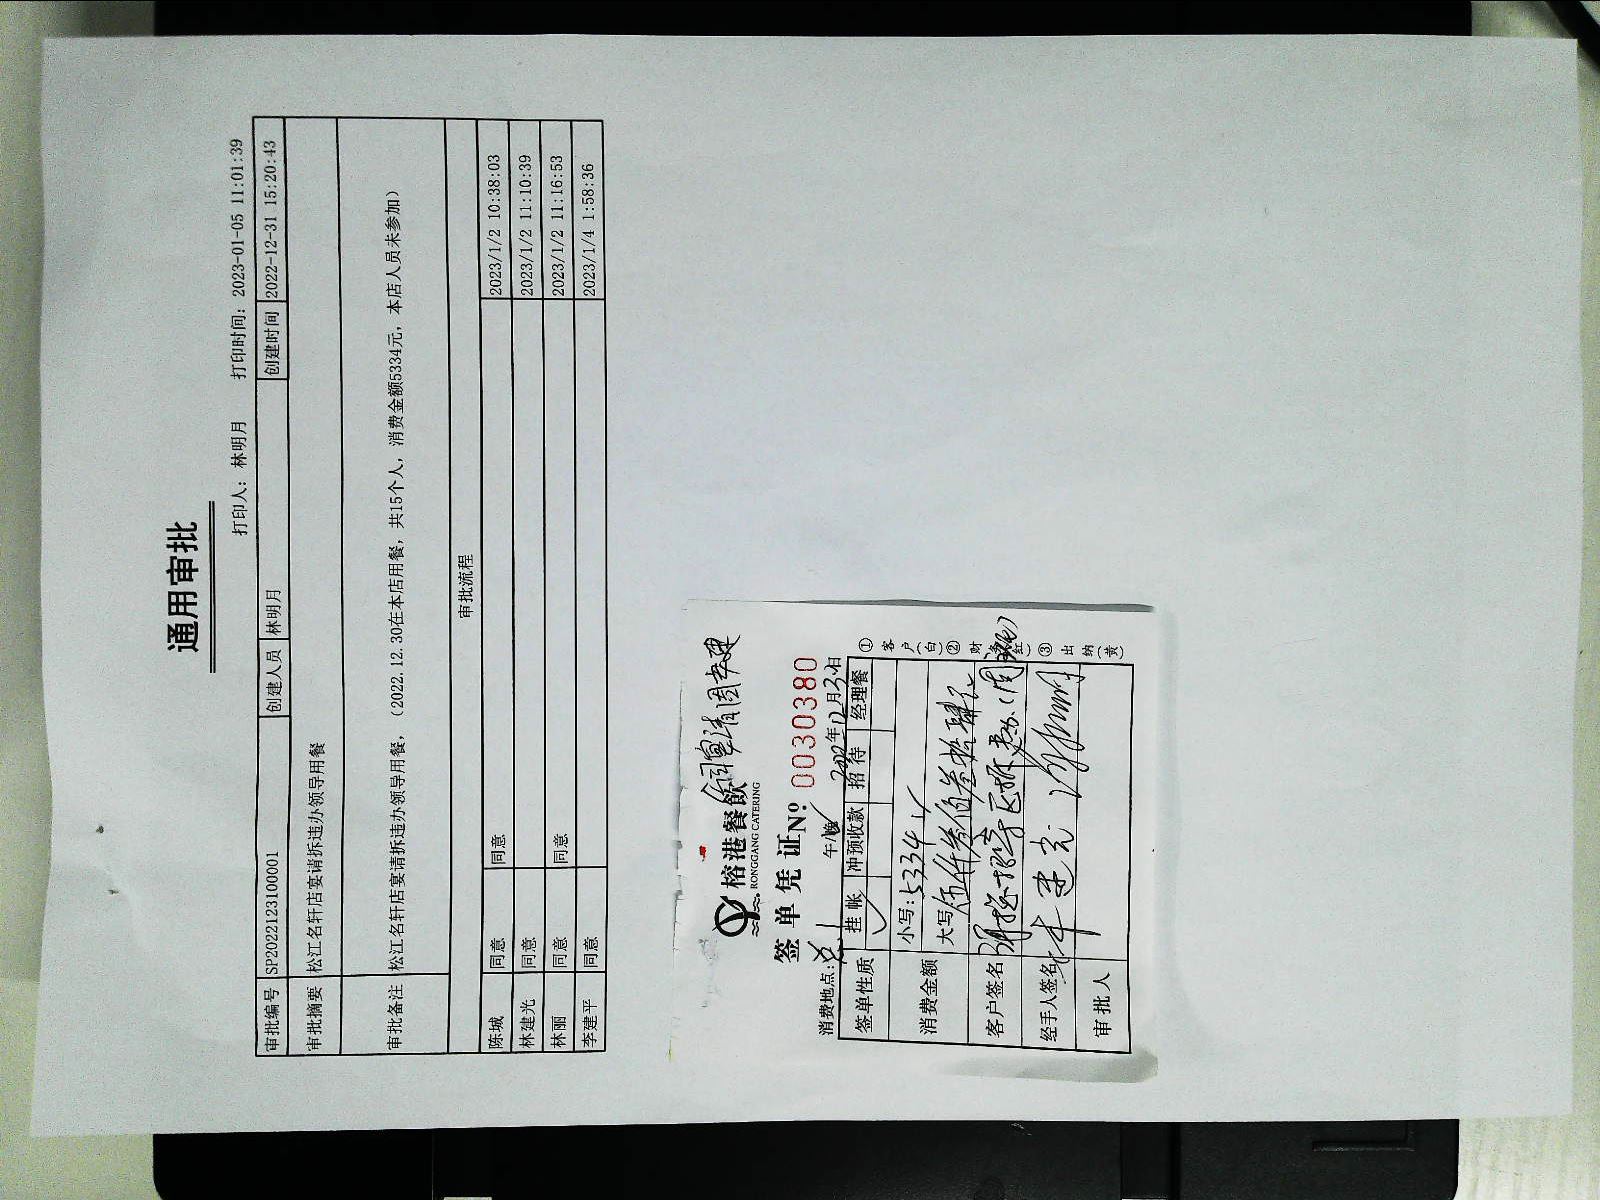 通用审批
打印人：林明月 打印时间：2023-01-05 11:01:39
审批编号 SP2022123100001 创建人员 林明月 创建时间 2022-12-31 15:20:43
审批摘要 松江名轩店宴请拆违办领导用餐
审批备注 松江名轩店宴请拆违办领导用餐，（2022.12.30在本店用餐，共15个人，消费金额5334元，本店人员未参加）
审批流程
陈城 同意 同意 2023/1/2 10:38:03
林建光 同意 2023/1/2 11:10:39
林丽 同意 同意 2023/1/2 11:16:53
李建平 同意 2023/1/4 1:58:36
榕港餐飲
RONGGANG CATERING
签单凭证 Nº: 0030380
消费地点: 午/晚 2022年12月30日
签单性质 挂帐 ✓ 冲预收款 招待 经理餐
消费金额 小写: 5334
大写 伍仟叁佰叁拾肆元
客户签名
经手人签名
审批人
① 客户(白) ② 财务(红) ③ 出纳(黄)